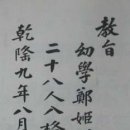 教旨
幼學鄭姬
二十八人八格
乾隆九年八月